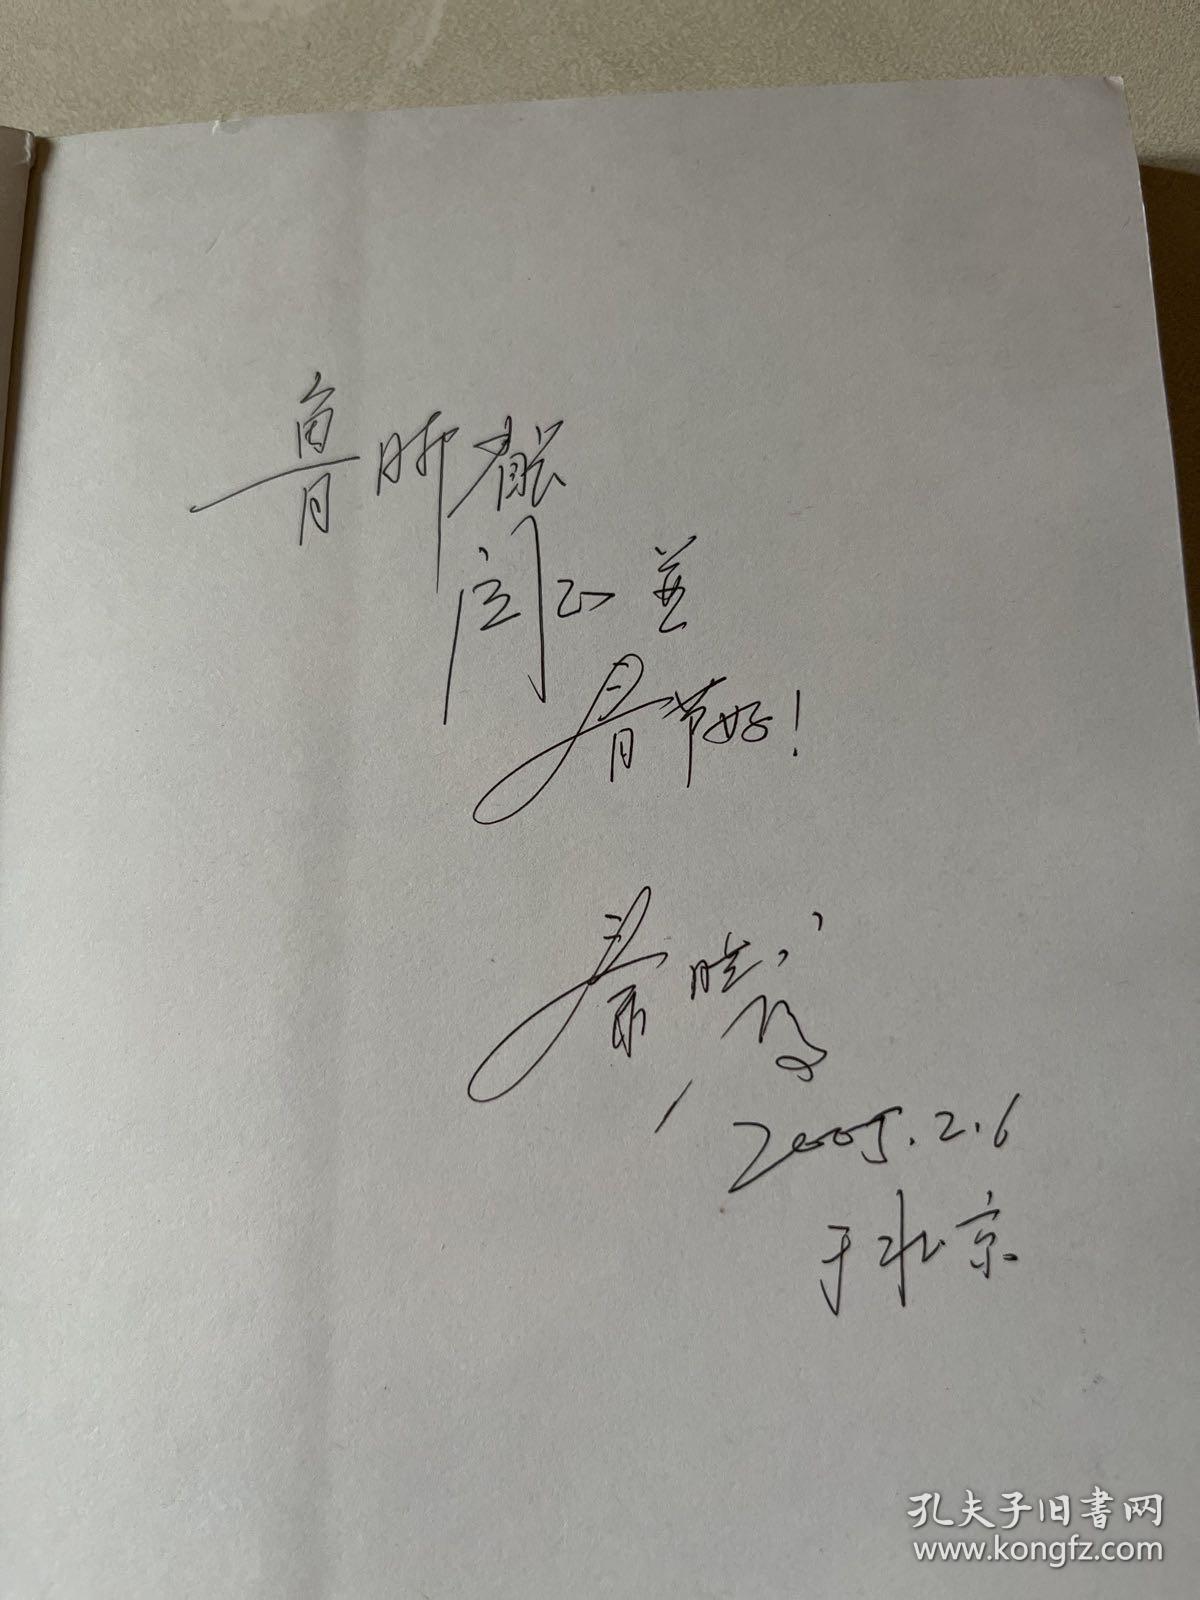 鲁
正 并
春节好！
秦晓
2005.2.6
于北京
孔夫子旧書网
www.kongfz.com